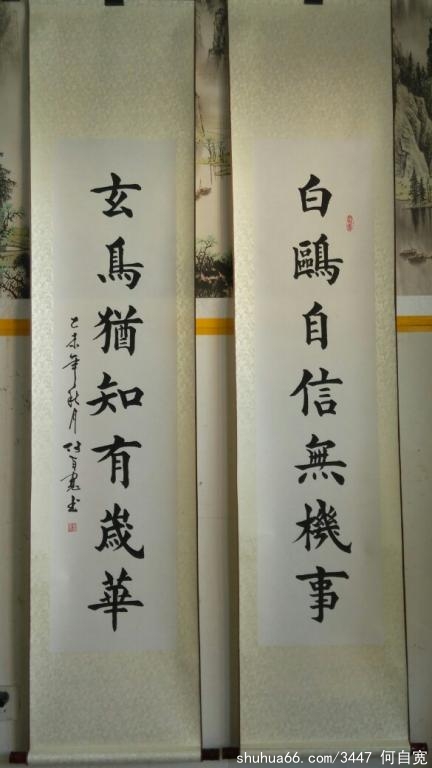 白鷗自信無機事
玄鳥猶知有歲華
乙未年秋月何自寬書
shuhua66.com/3447 何自宽